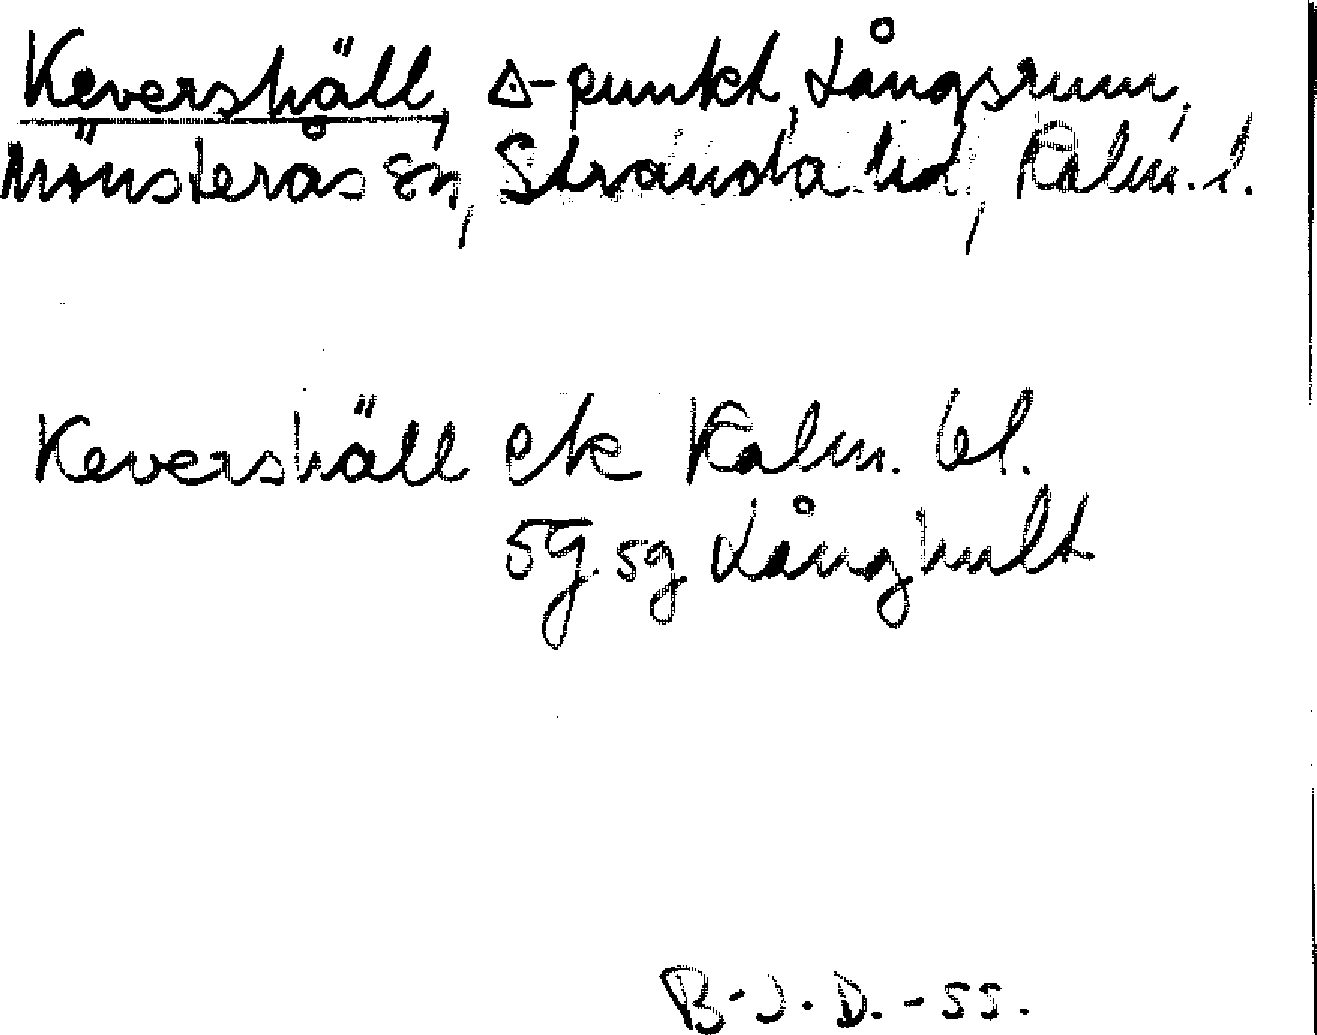 Kevershäll, △-punkt, Långsrum,
Mönsterås sn, Stranda hd, Kalm. l.
Kevershäll ek Kalm. bl.
5G.5g Långhult
B-J.D.-55.